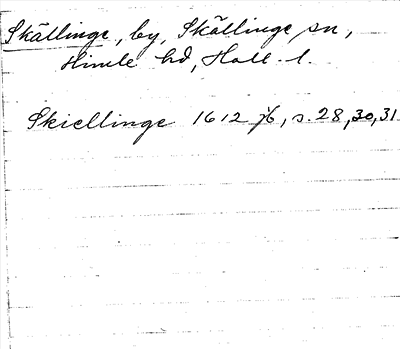 Skällinge, by, Skällinge sn,
Himle hd, Hall. l.
Skiellinge 1612 1/6, s. 28, 30, 31